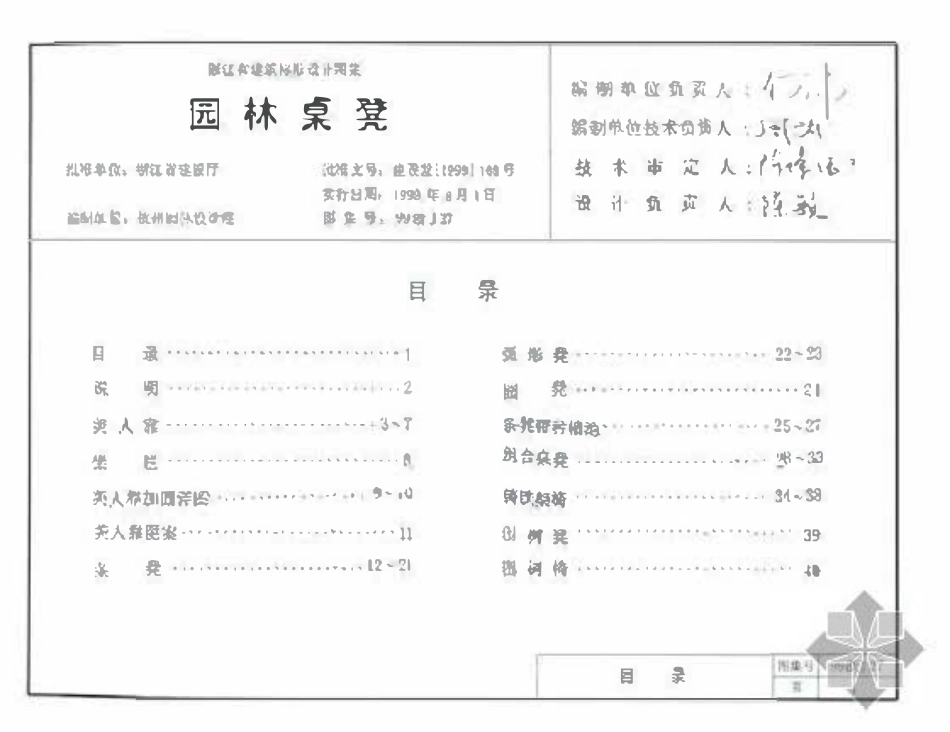 浙江省建筑标准设计图集
园林桌凳
批准单位：浙江省建设厅
批准文号：建设发[1999]108号
实行日期：1999年8月1日
编制单位：杭州园林设计院
图集号：99浙J37
编制单位负责人：
编制单位技术负责人：
技术审定人：
设计负责人：陈敏
目 录
目 录 1
说 明 2
美人靠 3~7
坐 栏 8
美人靠加固详图 9~10
美人靠图案 11
条 凳 12~21
弧形凳 22~23
圆 凳 24
条凳带花格池 25~27
组合桌凳 28~33
铸铁椅 34~38
围树凳 39
围树椅 40
目 录
图集号
页